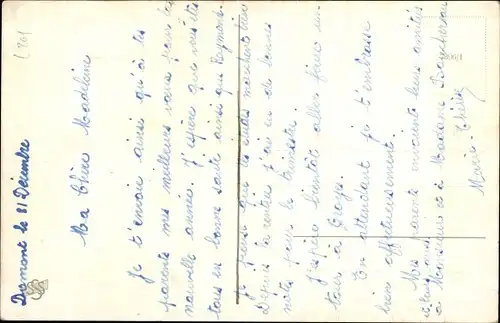 Domont le 31 Décembre
Ma Chère Madeleine
Je t'envoie ainsi qu'à tes
parents mes meilleurs vœux pour la
nouvelle année. J'espère que vous êtes
tous en bonne santé ainsi que Raymond.
Je pense que tes études marchent bien
Depuis la rentrée j'ai eu de bonnes
notes pour le trimestre.
J'espère bientôt aller faire un
tour à
En attendant je t'embrasse
bien affectueusement.
Mes parents envoient leurs amitiés
à Monsieur et à Madame
Marie Thérèse